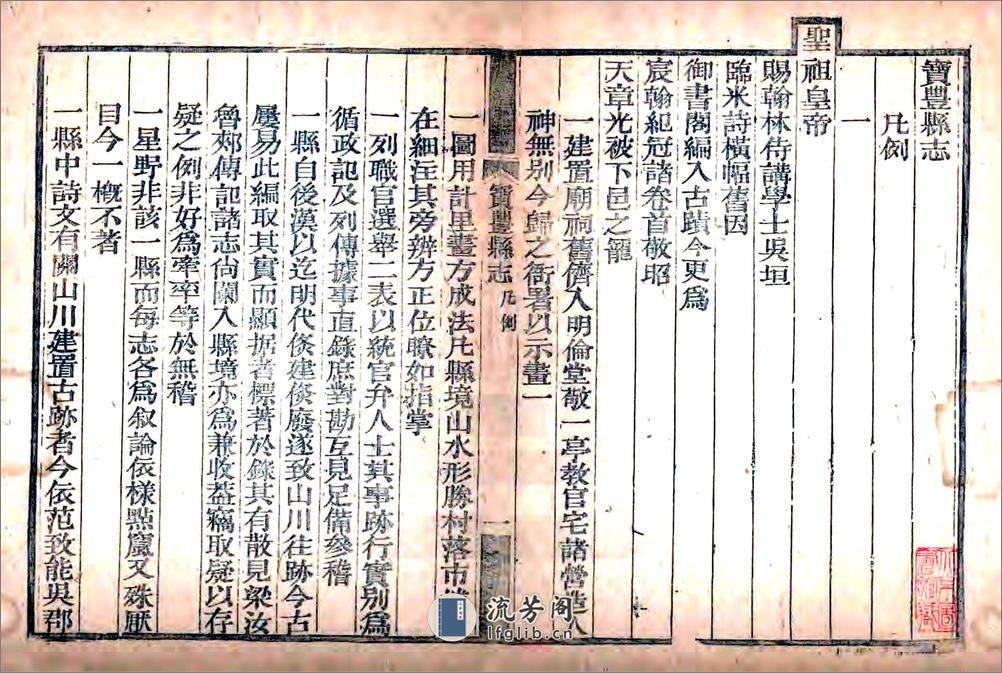 寶豐縣志
凡例
一
聖祖皇帝
賜翰林侍講學士吳垣
臨米詩橫幅舊因
御書閣編入古蹟今更爲
宸翰紀冠諸卷首敬昭
天章光被下邑之寵
一建置廟祠舊儕入明倫堂敬一亭教官宅諸營造人
神無别今歸之衙署以示畫一
寶豐縣志
凡例
一
一圖用計里畫方成法凡縣境山水形勝村落市
在細注其旁辨方正位瞭如指掌
一列職官選舉二表以統官弁人士其事跡行實别爲
循政記及列傳據事直錄庶對勘互見足備參稽
一縣自後漢以迄明代倏建倏廢遂致山川往跡今古
屢易此編取其實而顯据者標著於錄其有散見梁汝
魯郟傳記諸志尙闌入縣境亦爲兼收葢竊取疑以存
疑之例非好爲牽牽等於無稽
一星野非該一縣而每志各爲叙論依樣點竄又殊厭
目今一槪不著
一縣中詩文有關山川建置古跡者今依范致能吳郡
流芳阁
lfglib.cn